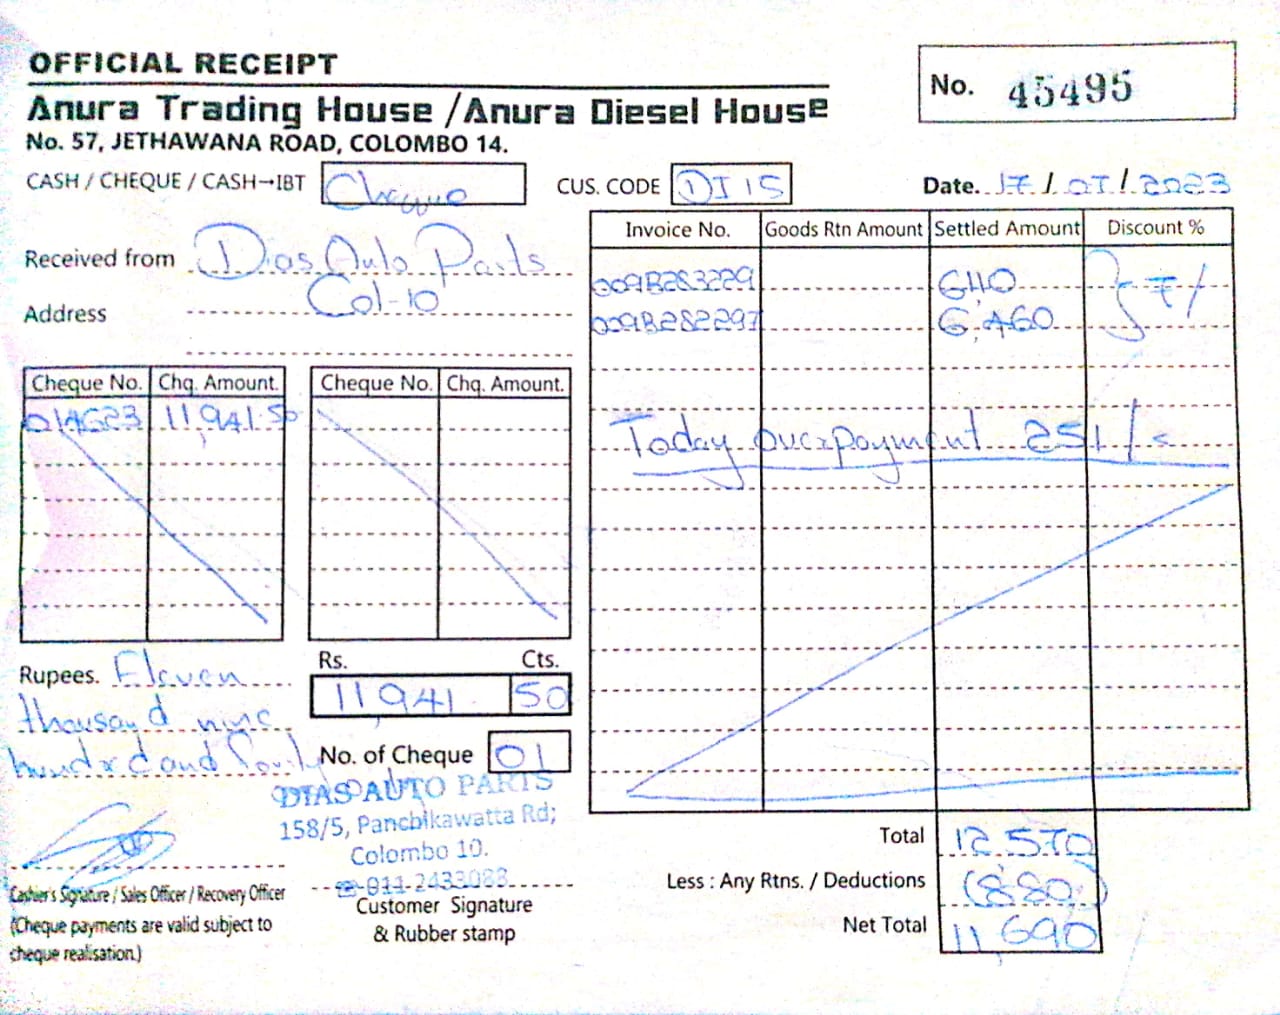 OFFICIAL RECEIPT
Anura Trading House / Anura Diesel House
No. 57, JETHAWANA ROAD, COLOMBO 14.
No. 45495
CASH / CHEQUE / CASH→IBT Cheque
CUS. CODE DI 15
Date. 17 / 07 / 2023
Received from Dias Auto Parts
Address Col-10
Invoice No. Goods Rtn Amount Settled Amount Discount %
009B283229 6110 } 7/
009B282297 6,460
Today overpayment 251/=
Cheque No. Chq. Amount. Cheque No. Chq. Amount.
014623 11,941.50
Rupees. Eleven
thousand nine
hundred and forty
Rs. Cts.
11,941. 50
No. of Cheque 01
DIAS AUTO PARTS
158/5, Panchikawatta Rd;
Colombo 10.
☎ 011-2433088
Cashier's Signature / Sales Officer / Recovery Officer
(Cheque payments are valid subject to
cheque realisation.)
Customer Signature
& Rubber stamp
Total 12,570
Less : Any Rtns. / Deductions (880)
Net Total 11,690